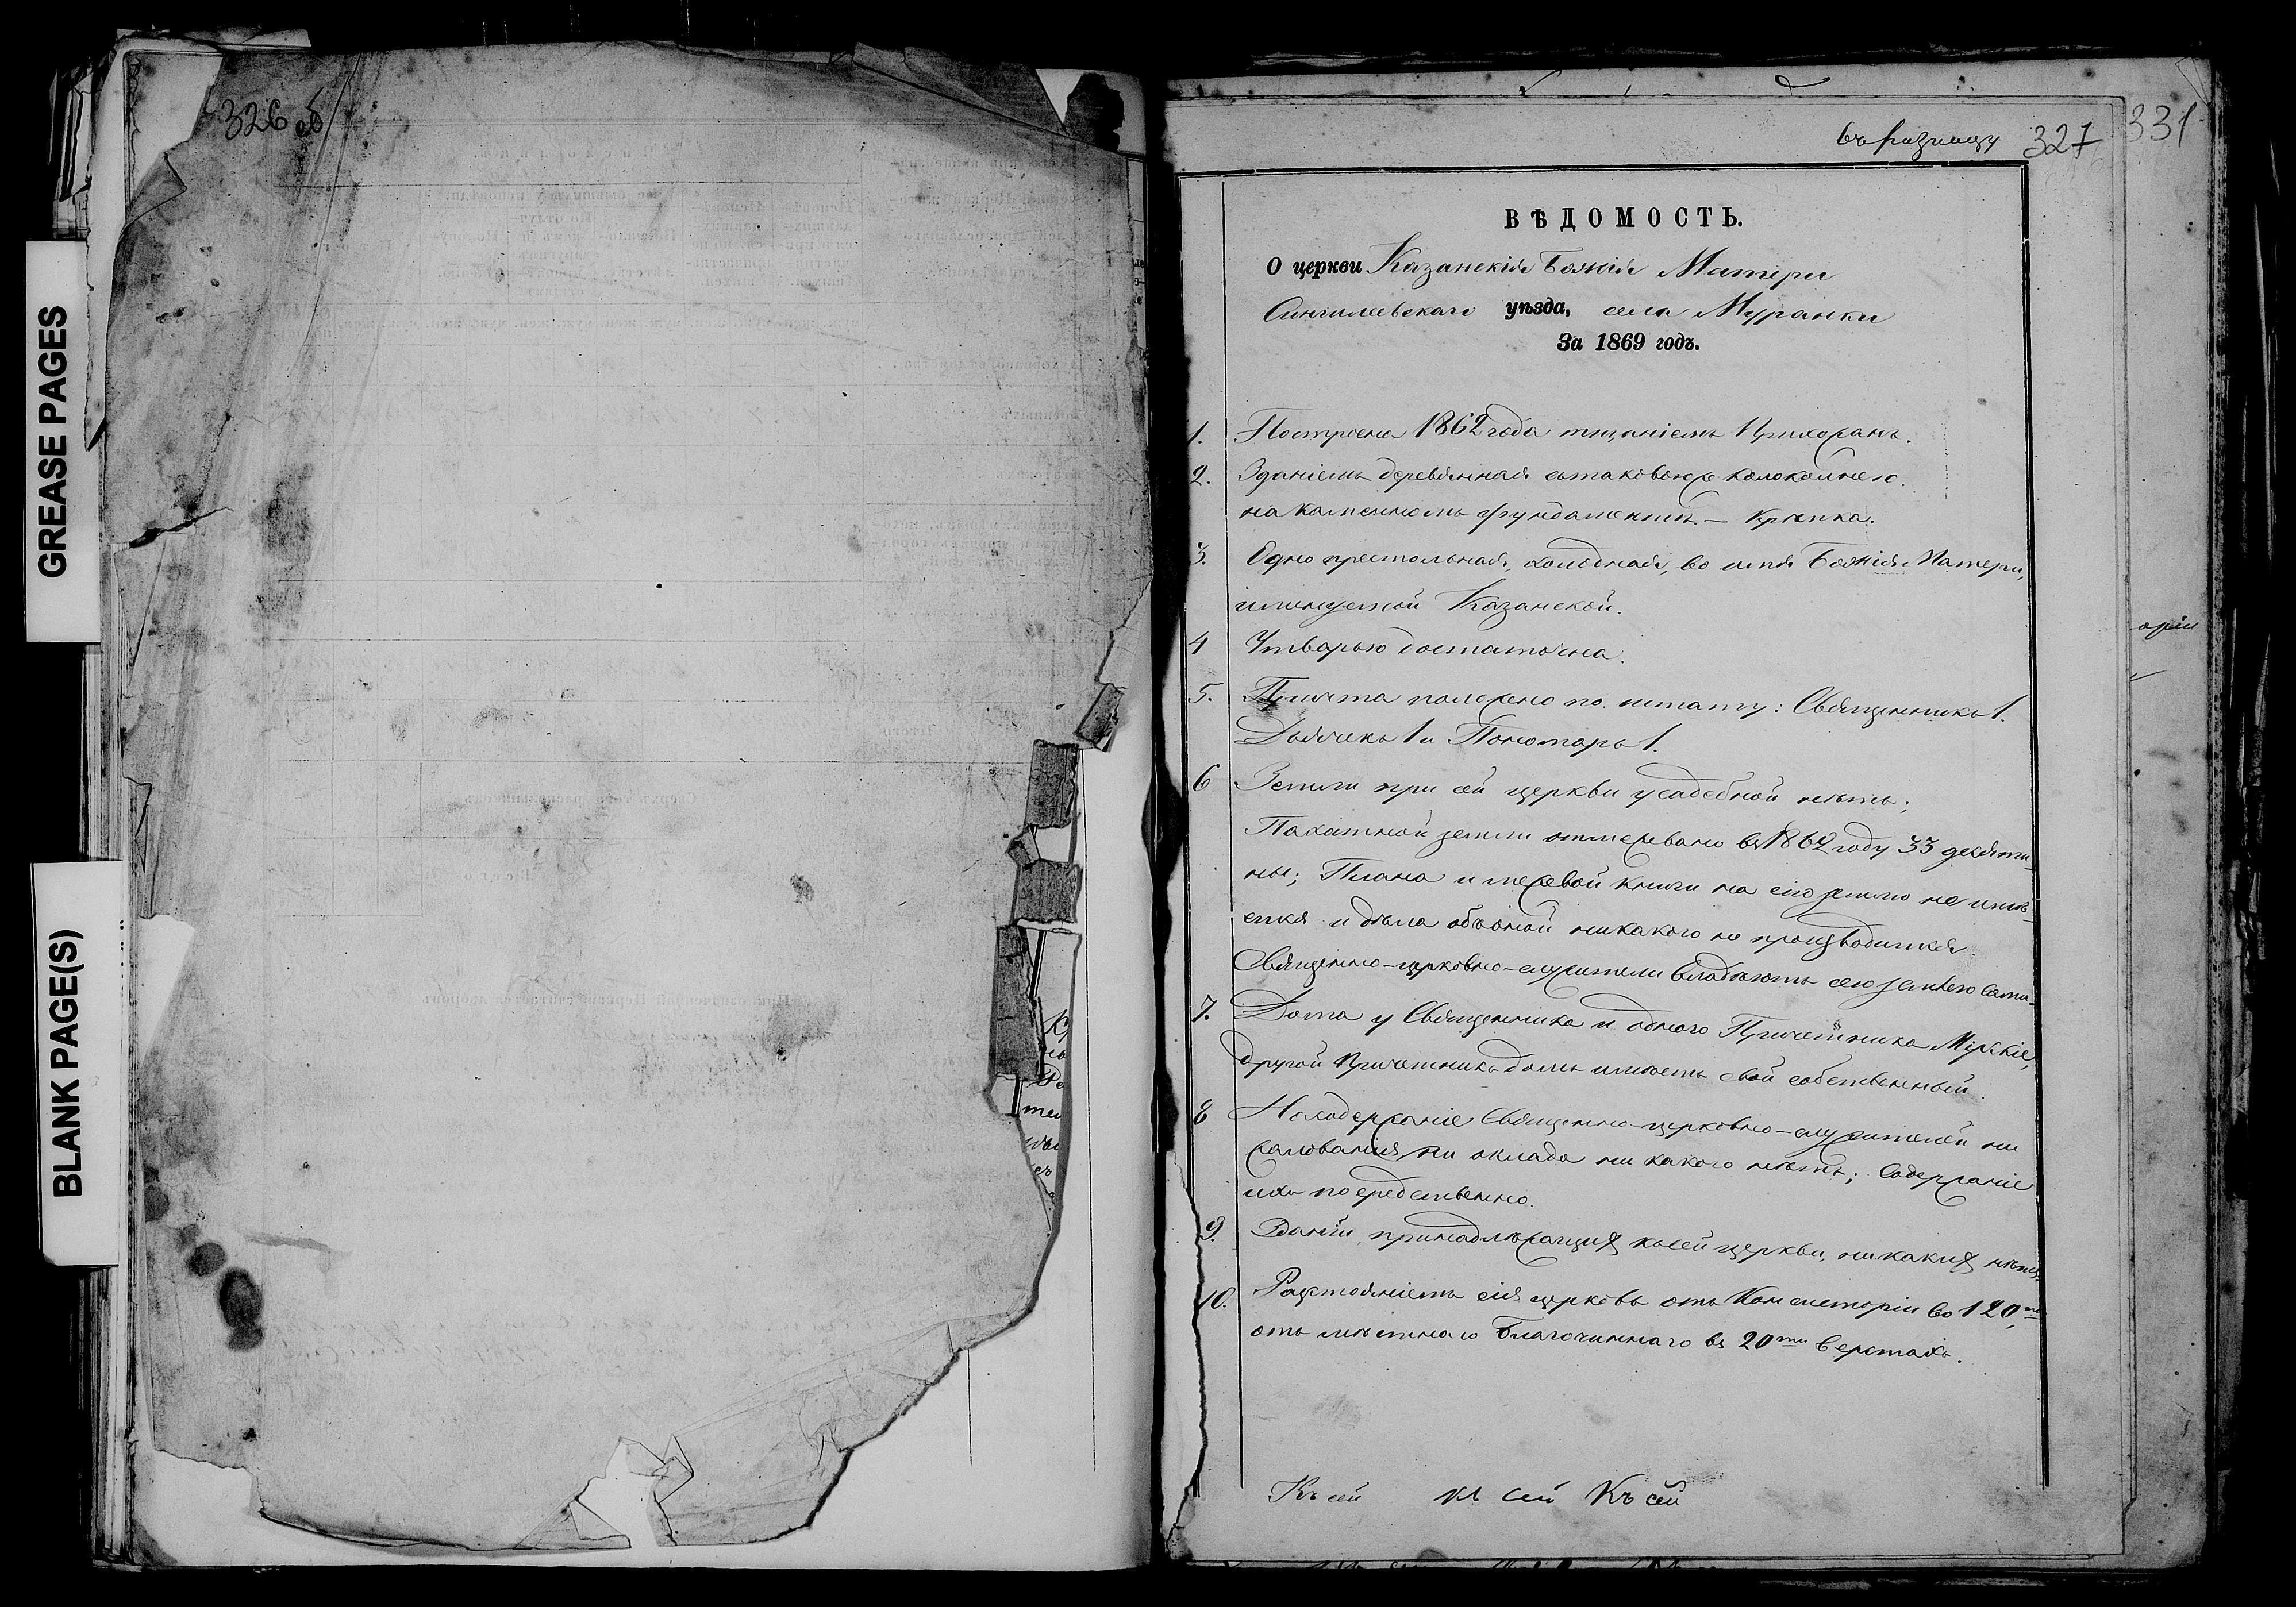 GREASE PAGES
BLANK PAGE(S)
326 об
въ ризницу 327
331
ВѢДОМОСТЬ.
О церкви Казанскія Божія Матери
Сингилеевскаго уѣзда, села Муранки
За 1869 годъ.
1. Построена 1862 года тщаніемъ Прихожанъ.
2. Зданіемъ деревянная съ таковою же колокольнею
на каменномъ фундаментѣ – крѣпка.
3. Однопрестольная, холодная, во имя Божія Матери,
именуемой Казанской.
4 Утварью достаточна.
5. Причта положено по штату: Священникъ 1.
Дьячекъ 1 и Пономарь 1.
6 Земли при сей церкви усадебной нѣтъ;
Пахатной земли отмежевано въ 1862 году 33 десяти-
ны; Плана и межевой книги на сію землю не имѣ-
ется и дѣла объ оной никакого не производится.
Священно-церковно-служители владѣютъ сею землею сами.
7. Дома у Священника и одного Причетника Мірскіе,
другой Причетникъ домъ имѣетъ свой собственный.
8 На содержаніе Священно-церковно-служителей ни
жалованія, ни оклада ни какого нѣтъ; Содержаніе
ихъ посредственно.
9. Зданій, принадлежащихъ къ сей церкви, никакихъ нѣтъ.
10. Разстояніемъ сія церковь отъ Консисторіи во 120,
отъ мѣстнаго Благочиннаго въ 20ти верстахъ.
Къ сей къ сей Къ сей
оріи